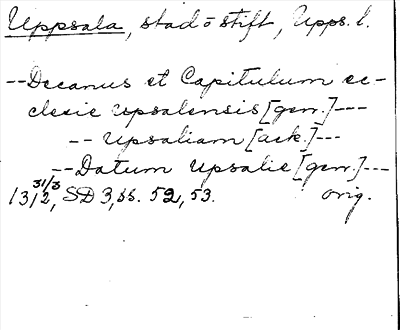 Uppsala, stad o stift, Upps. l.
--Decanus et Capitulum ec-
clesie upsalensis [gen.]---
-- Upsaliam [ack.]---
--Datum Upsalie [gen.]---
1312 31/3, SD 3, ss. 52, 53. orig.